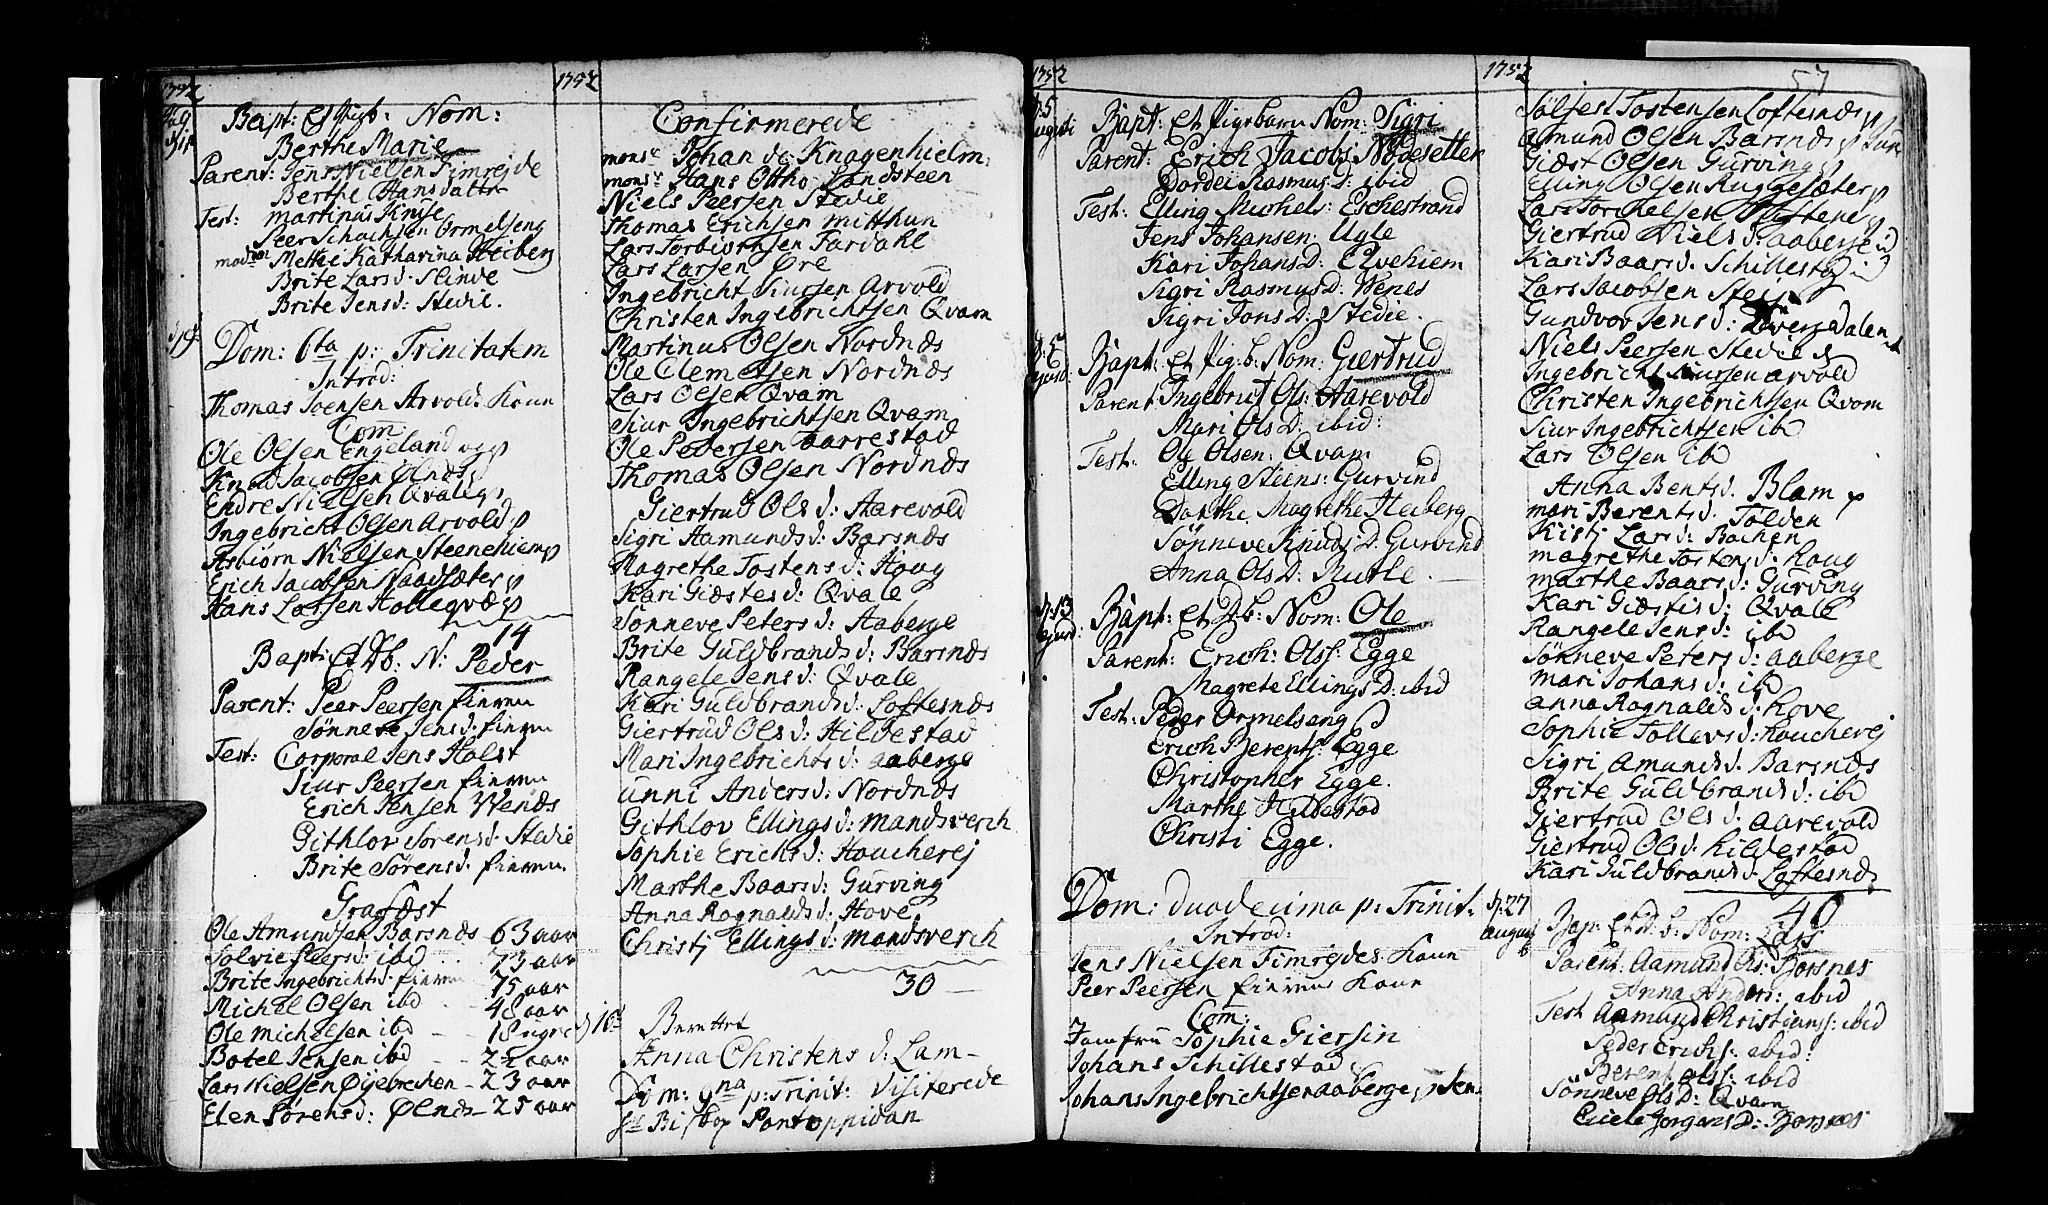 1752
1752
Bapt: Et Pigb. Nom:
Berthe Marie
Parent: Jens Nielsen Timrejde
Berthe Hansdattr
Test: Martinus Knise
Peer Schachsen Ormelseng
mad. Mette Katharina Heiberg
Brite Lars d. Slinde
Brite Jens d: Stedie.
Dom: 6ta p: Trinitatem
Introd:
Thomas Joensen Arvolds Kone
Com:
Ole Olsen Engeland
Knud Jacobsen Ølnæs
Endre Nielsen Qvale
Ingebricht Olsen Arvold
Asbiørn Nielsen Steenehiem
Erich Jacobsen Naadsæter
Hans Larsen Holleqvæ
14
Bapt: Et Db: N: Peder
Parent: Peer Peersen fimren
Sønneve Jens d: fimren
Test: Corporal Jens Holst
Siur Peersen fimren
Erich Jensen Venæs
Githlov Sørens d: Stedie
Brite Sørens d. fimren.
Grafæst
Ole Amundsen Barsnæs 63 aar
Solvie Peers d: ibd 73 aar
Brite Ingebrichts d: fimren 75 aar
Michel Olsen ibd 48 aar
Ole Michelsen ibd 18 ugr
Botel Jensen ibd 22 aar
Lars Nielsen Øyebrechen 23 aar
Elen Sørens d: Ølnæs 25 aar
Confirmerede
monsr Johan de Knagenhielm
monsr Hans Ottho Landsteen
Niels Peersen Stedie
Thomas Erichsen Mitthun
Lars Torbiørnsen Fardahl
Lars Larsen Øre
Ingebricht Siursen Arvold
Christen Ingebrichtsen Qvam
Martinus Olsen Nordnæs
Ole Clemetsen Nordnæs
Lars Olsen Qvam
Siur Ingebrichtsen Qvam
Ole Pedersen Aarrestad
Thomas Olsen Nordnæs
Giertrud Ols d: Aarevold
Sigri Aamunds d: Barsnæs
Magrethe Tostens d: Houg
Kari Giæstes d: Qvale
Sønneve Peters d: Aaberge
Brite Guldbrands d: Barsnæs
Rangele Jens d: Qvale
Kari Guldbrands d: Loftesnæs
Giertrud Ols d: Hildestad
Mari Ingebrichts d: Aaberge
Unni Anders d: Nordnæs
Githlov Ellings d: Mandsverch
Sophie Erichs d: Houcherej
Marthe Baars d: Gurving
Anna Rognalds d: Hove
Christj Ellings d: Mandsverch
30
Berettet
Anna Christens d: Lam
Dom: 9na p: Trinit: Visiterede
Hr Biskop Pontoppidan
1752
1752
57
d. 5 Augusti Bapt: Et Pigebarn Nom: Sigri
Parent: Erich Jacobs: Nødesetter
Dordei Rasmus D: ibid
Test: Elling Michels: Eschestrand
Jens Johansen: Ugle
Kari Johans D: Elvehiem
Sigri Rasmus D: Venes
Sigri Jons D: Stedie.
Bapt: et Pig: b: Nom: Giertrud
Parent Ingebrigt Ols: Aarevold
Mari Ols D: ibid:
Test: Ole Olsen: Qvam
Elling Steens: Gurvind
Dorthe Magrethe Heiberg
Sønneve Knuds D: Gurvind
Anna Ols D: Rutle.
d: 13 Bapt: Et D b: Nom: Ole
Parent: Erich: Olss: Egge
Magrete Ellings D: ibid
Test: Peder Ormelseng
Erich Berents: Egge
Christopher Egge.
Marthe Hildestad
Christi Egge.
Dom: duodecima p: Trinit:
Introd:
Jens Nielsen Timrejdes Kone
Peer Peersen fimrens Kone
Com:
Jomfru Sophie Giersin
Johans Schillestad
Johans Ingebrichtsen Aaberge
Sølfest Tostensen Loftesnæs
Amund Olsen Barsnæs
Giæst Olsen Gurving
Elling Olsen Ruggesæter
Lars Torchelsen
Giertrud Niels d: Aaberge
Kari Baars d. Schillestad
Lars Jacobsen
Gundvor Jens d:
Niels Peersen Stedie
Ingebricht Siursen Arvold
Christen Ingebrichtsen Qvam
Siur Ingebrichtsen ibd
Lars Olsen ibd
Anna Bents d. Blam
Mari Berents d. Tolden
Kistj Lars d: Bachen
Magrethe Tostens d: Houg
Marthe Baars d: Gurving
Kari Giæstes d: Qvale
Rangele Jens d: ibd
Sønneve Peters d: Aaberge
Mari Johans d: ibd
Anna Rognalds d. Hove
Sophie Tollevs d: Houcherej
Sigri Amunds d. Barsnæs
Brite Guldbrands d: ibd
Giertrud Ols d: Aarevold
Giertrud Ols d. Hildestad
Kari Guldbrands d. Loftesnæs
40
d: 27 august Bap: Et D: b: Nom: Lars
Parent: Aamund Ols: Borsnes
Anna Anders: ibid
Test Aamund Christians: ibid
Peder Erichs: ibid:
Berent Olss: ibid
Sønneve Ols D: Qvam
Eiele Jorgens D: Borsnes